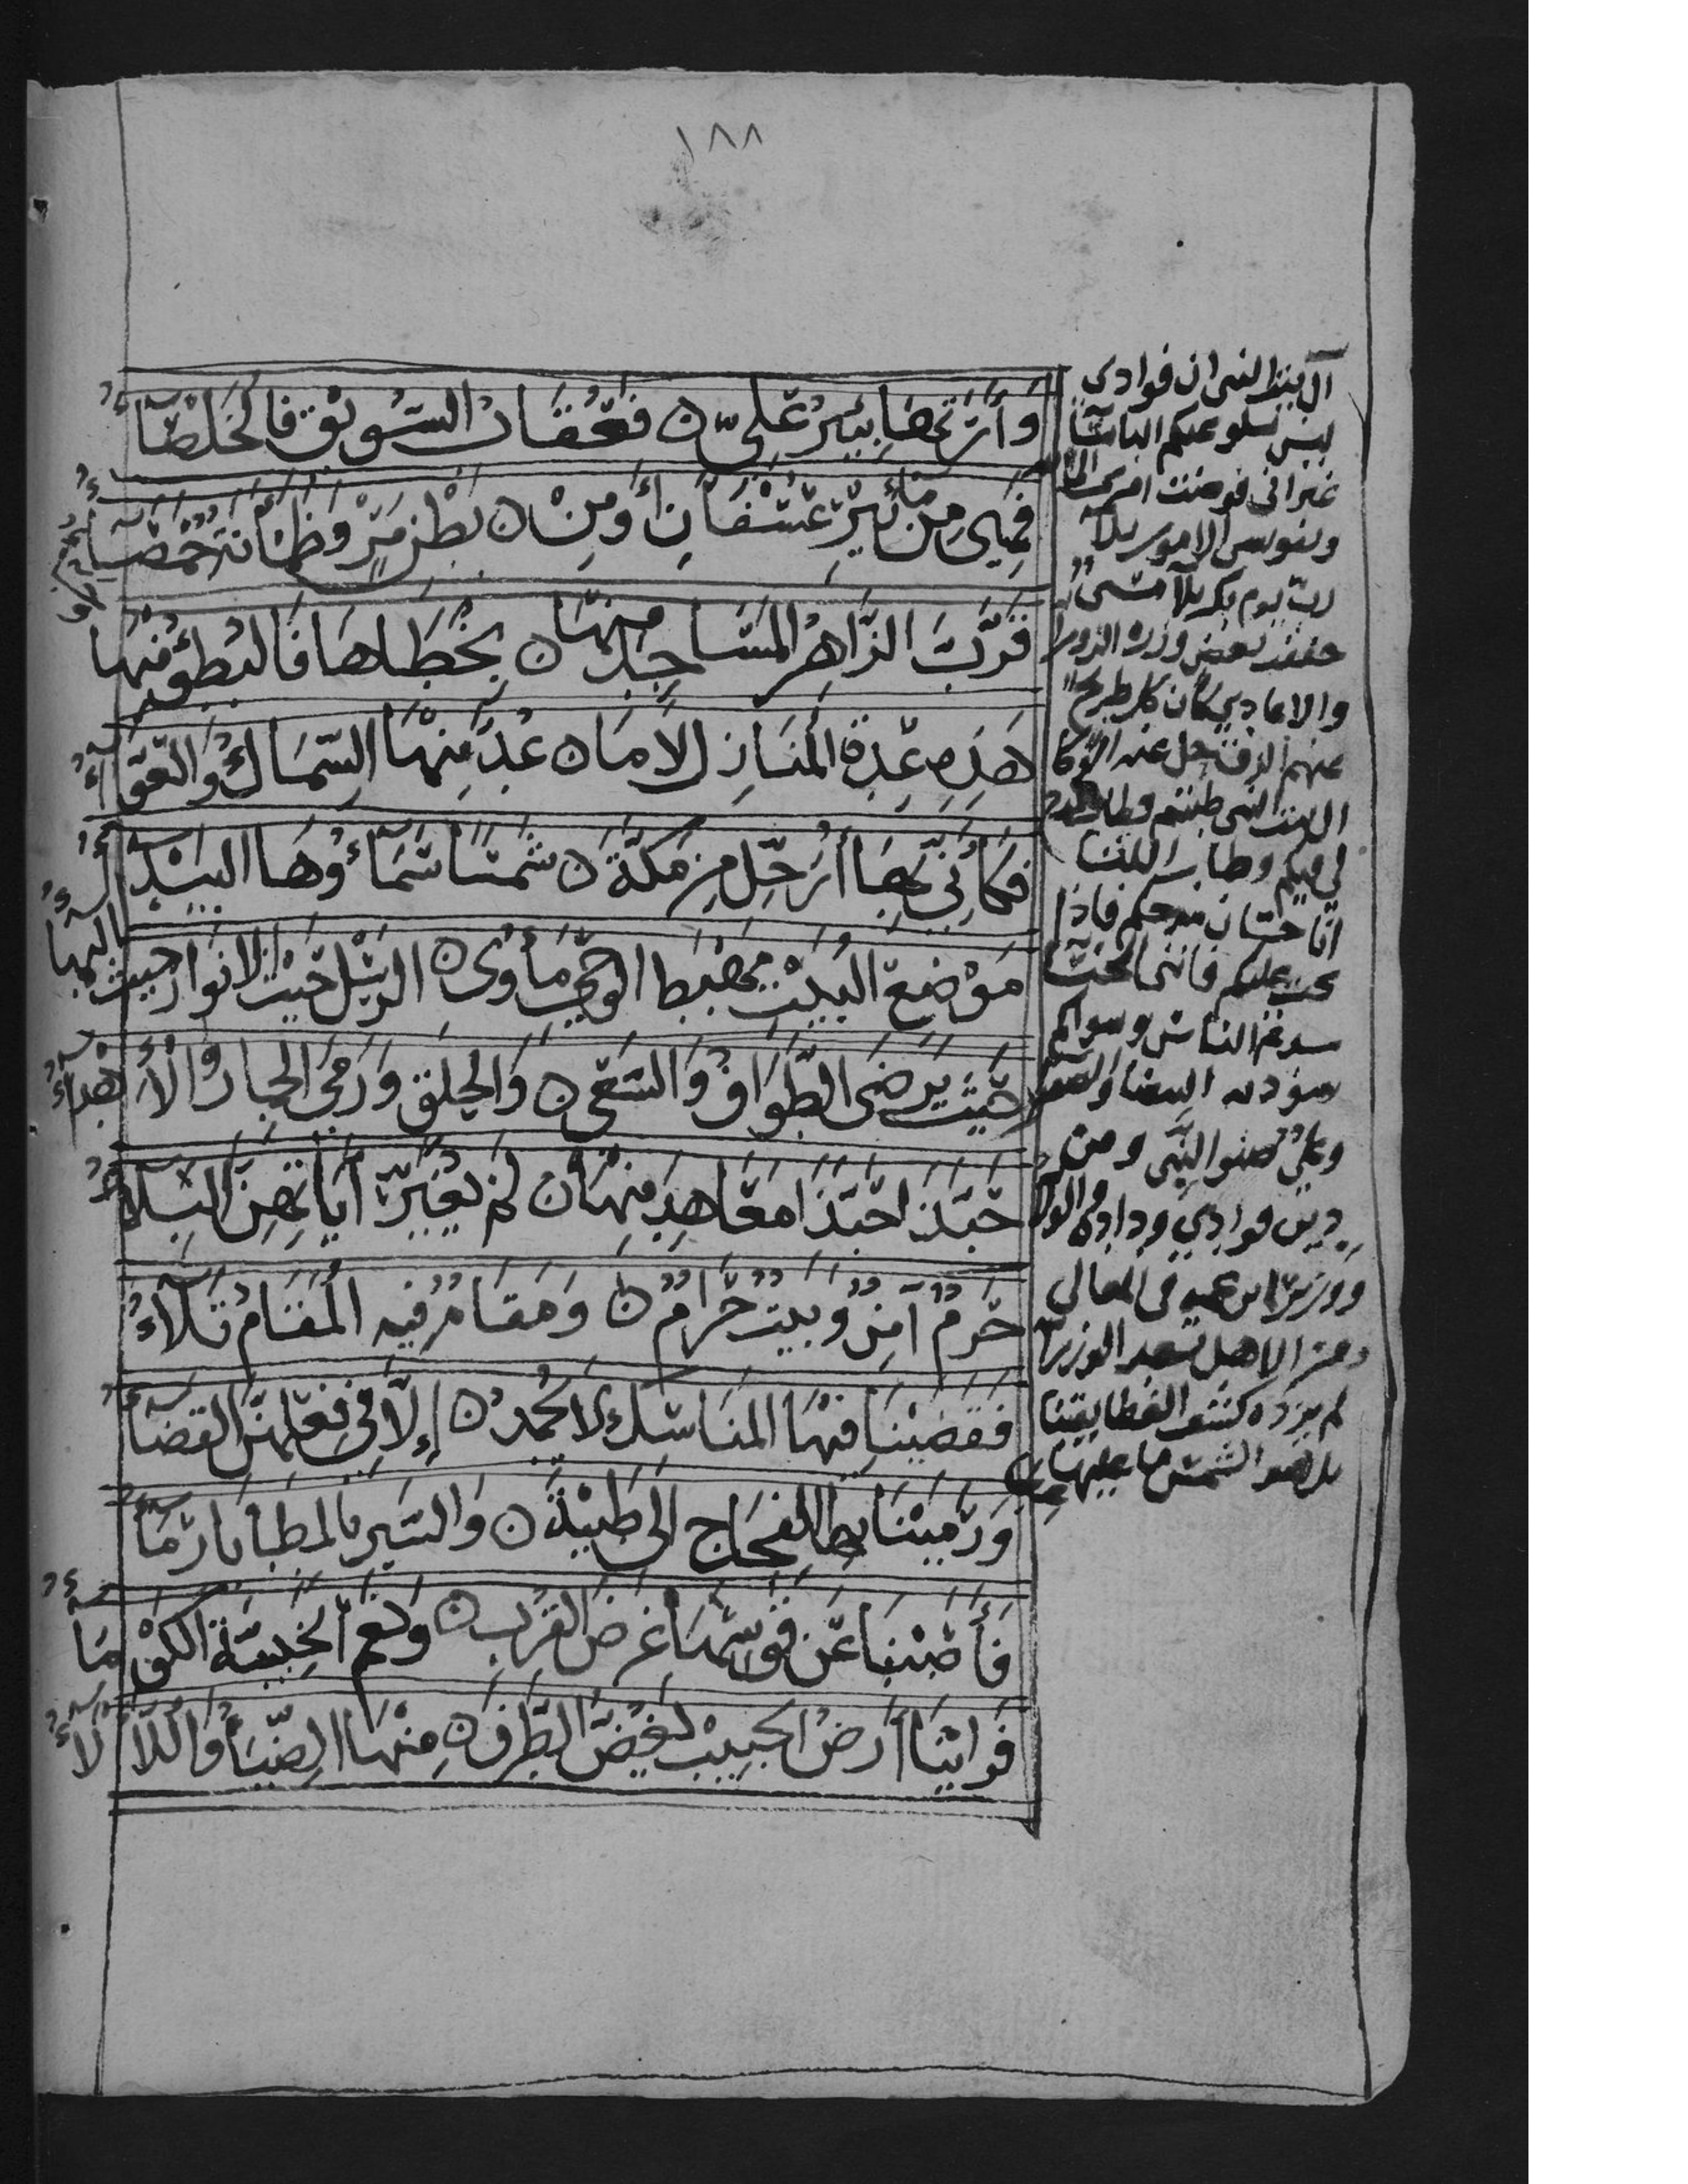 ١٨٨
وَأَرَتْهَا بِئْرُ عَلِيّ ں فَعُقَابُ السَّوِيقِ فَالْخَلْصَاءُ
فَهِيَ مِنْ مَاءِ بِئْرِ عُسْفَانَ أَوْ مِنْ ں بَطْنِ مَرٍّ وَظَمْآنَةٌ خَمْصَاءُ
قَرَّبَ الزَّاهِرُ الْمَسَاجِدَ مِنْهَا ں بِخُطَاهَا فَالْبُطْؤُ مِنْهَا
هَذِهِ عِدَّةُ الْمَنَازِلِ لَا مَا ں عُدَّ مِنْهَا السِّمَاكُ وَالْعَوَّاءُ
فَكَأَنِّي بِهَا أُرَحَّلُ مِنْ مَكَّةَ ں شَمْسًا سَمَاؤُهَا الْبَيْدَاءُ
مَوْضِعُ الْبَيْتِ مَهْبِطُ الْوَحْيِ مَأْوَى ں الرُّسْلِ حَيْثُ الْأَنْوَارُ حَيْثُ الْبَهَاءُ
حَيْثُ فَرْضُ الطَّوَافِ وَالسَّعْيِ ں وَالْحَلْقِ وَرَمْيِ الْجِمَارِ وَالْإِهْدَاءُ
حَبَّذَا حَبَّذَا مَعَاهِدُ مِنْهَا ں لَمْ يُغَيِّرْ آيَاتِهِنَّ الْبِلَاءُ
حَرَمٌ آمِنٌ وَبَيْتٌ حَرَامٌ ں وَمَقَامٌ فِيهِ الْمُقَامُ تَلَاءُ
فَقَضَيْنَا فِيهَا الْمَنَاسِكَ لَا يُحْمَدُ ں إِلَّا فِي فِعْلِهِنَّ الْقَضَاءُ
وَرَمَيْنَا بِهَا الْفِجَاجَ إِلَى طَيْبَةَ ں وَالسَّيْرُ بِالْمَطَايَا رِمَاءُ
فَأَصَبْنَا عَنْ قَوْسِهَا غَرَضَ الْقُرْبِ ں وَنِعْمَ الْخَبِيئَةُ الْكَوْمَاءُ
فَرَأَيْنَا أَرْضَ الْحَبِيبِ يَغُضُّ الطَّرْفَ ں مِنْهَا الضِّيَاءُ وَاللَّأْلَاءُ
آل بيت النبي ان فوادي
ليس يسلو عنكم التاساء
غير اني فوضت امري الى الله
وتفويض الامور براء
رب يوم بكربلا مسيء
خففت بعض وزره الزوراء
والاعادي كان كل طريح
منهم الزق حل عنه الوكاء
ال بيت النبي طبتم فطاب المدح
لي فيكم وطاب الرثاء
انا حسان مدحكم فاذا
نحت عليكم فانني الخنساء
سدتم الناس وسواكم
سودته البيضا والصفراء
وعلي صنو النبي ومن
دين فوادي وداده والولاء
ووزير ابن عمه في المعالي
ومن الاهل تسعد الوزراء
لم يزده كشف الغطا يقينا
بل هو الشمس ما عليها غطاء